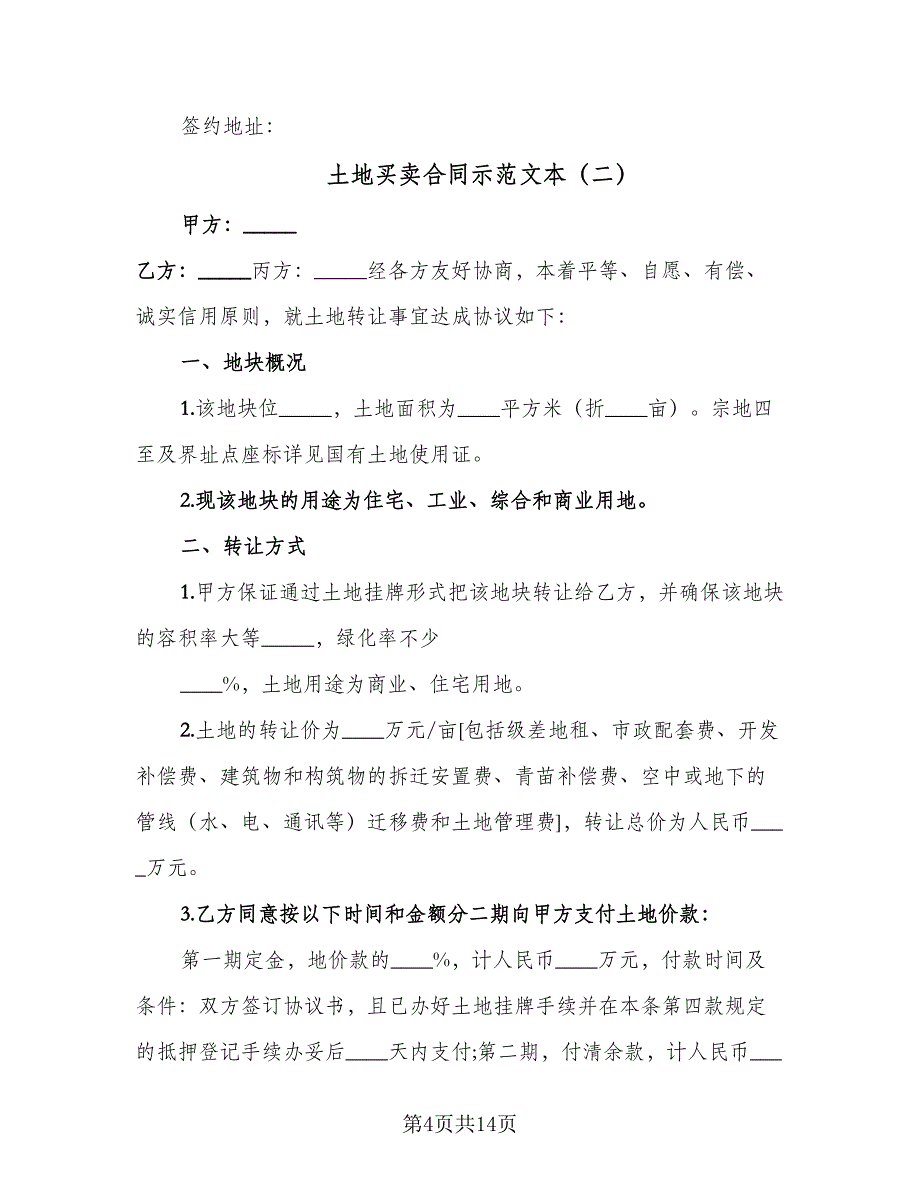 签约地址：
土地买卖合同示范文本（二）
甲方：_____
乙方：_____丙方：_____经各方友好协商，本着平等、自愿、有偿、
诚实信用原则，就土地转让事宜达成协议如下：
一、地块概况
1.该地块位_____，土地面积为____平方米（折____亩）。宗地四
至及界址点座标详见国有土地使用证。
2.现该地块的用途为住宅、工业、综合和商业用地。
二、转让方式
1.甲方保证通过土地挂牌形式把该地块转让给乙方，并确保该地块
的容积率大等_____，绿化率不少
____%，土地用途为商业、住宅用地。
2.土地的转让价为____万元/亩[包括级差地租、市政配套费、开发
补偿费、建筑物和构筑物的拆迁安置费、青苗补偿费、空中或地下的
管线（水、电、通讯等）迁移费和土地管理费]，转让总价为人民币___
_万元。
3.乙方同意按以下时间和金额分二期向甲方支付土地价款：
第一期定金，地价款的____%，计人民币____万元，付款时间及
条件：双方签订协议书，且已办好土地挂牌手续并在本条第四款规定
的抵押登记手续办妥后____天内支付;第二期，付清余款，计人民币___
第4页共14页